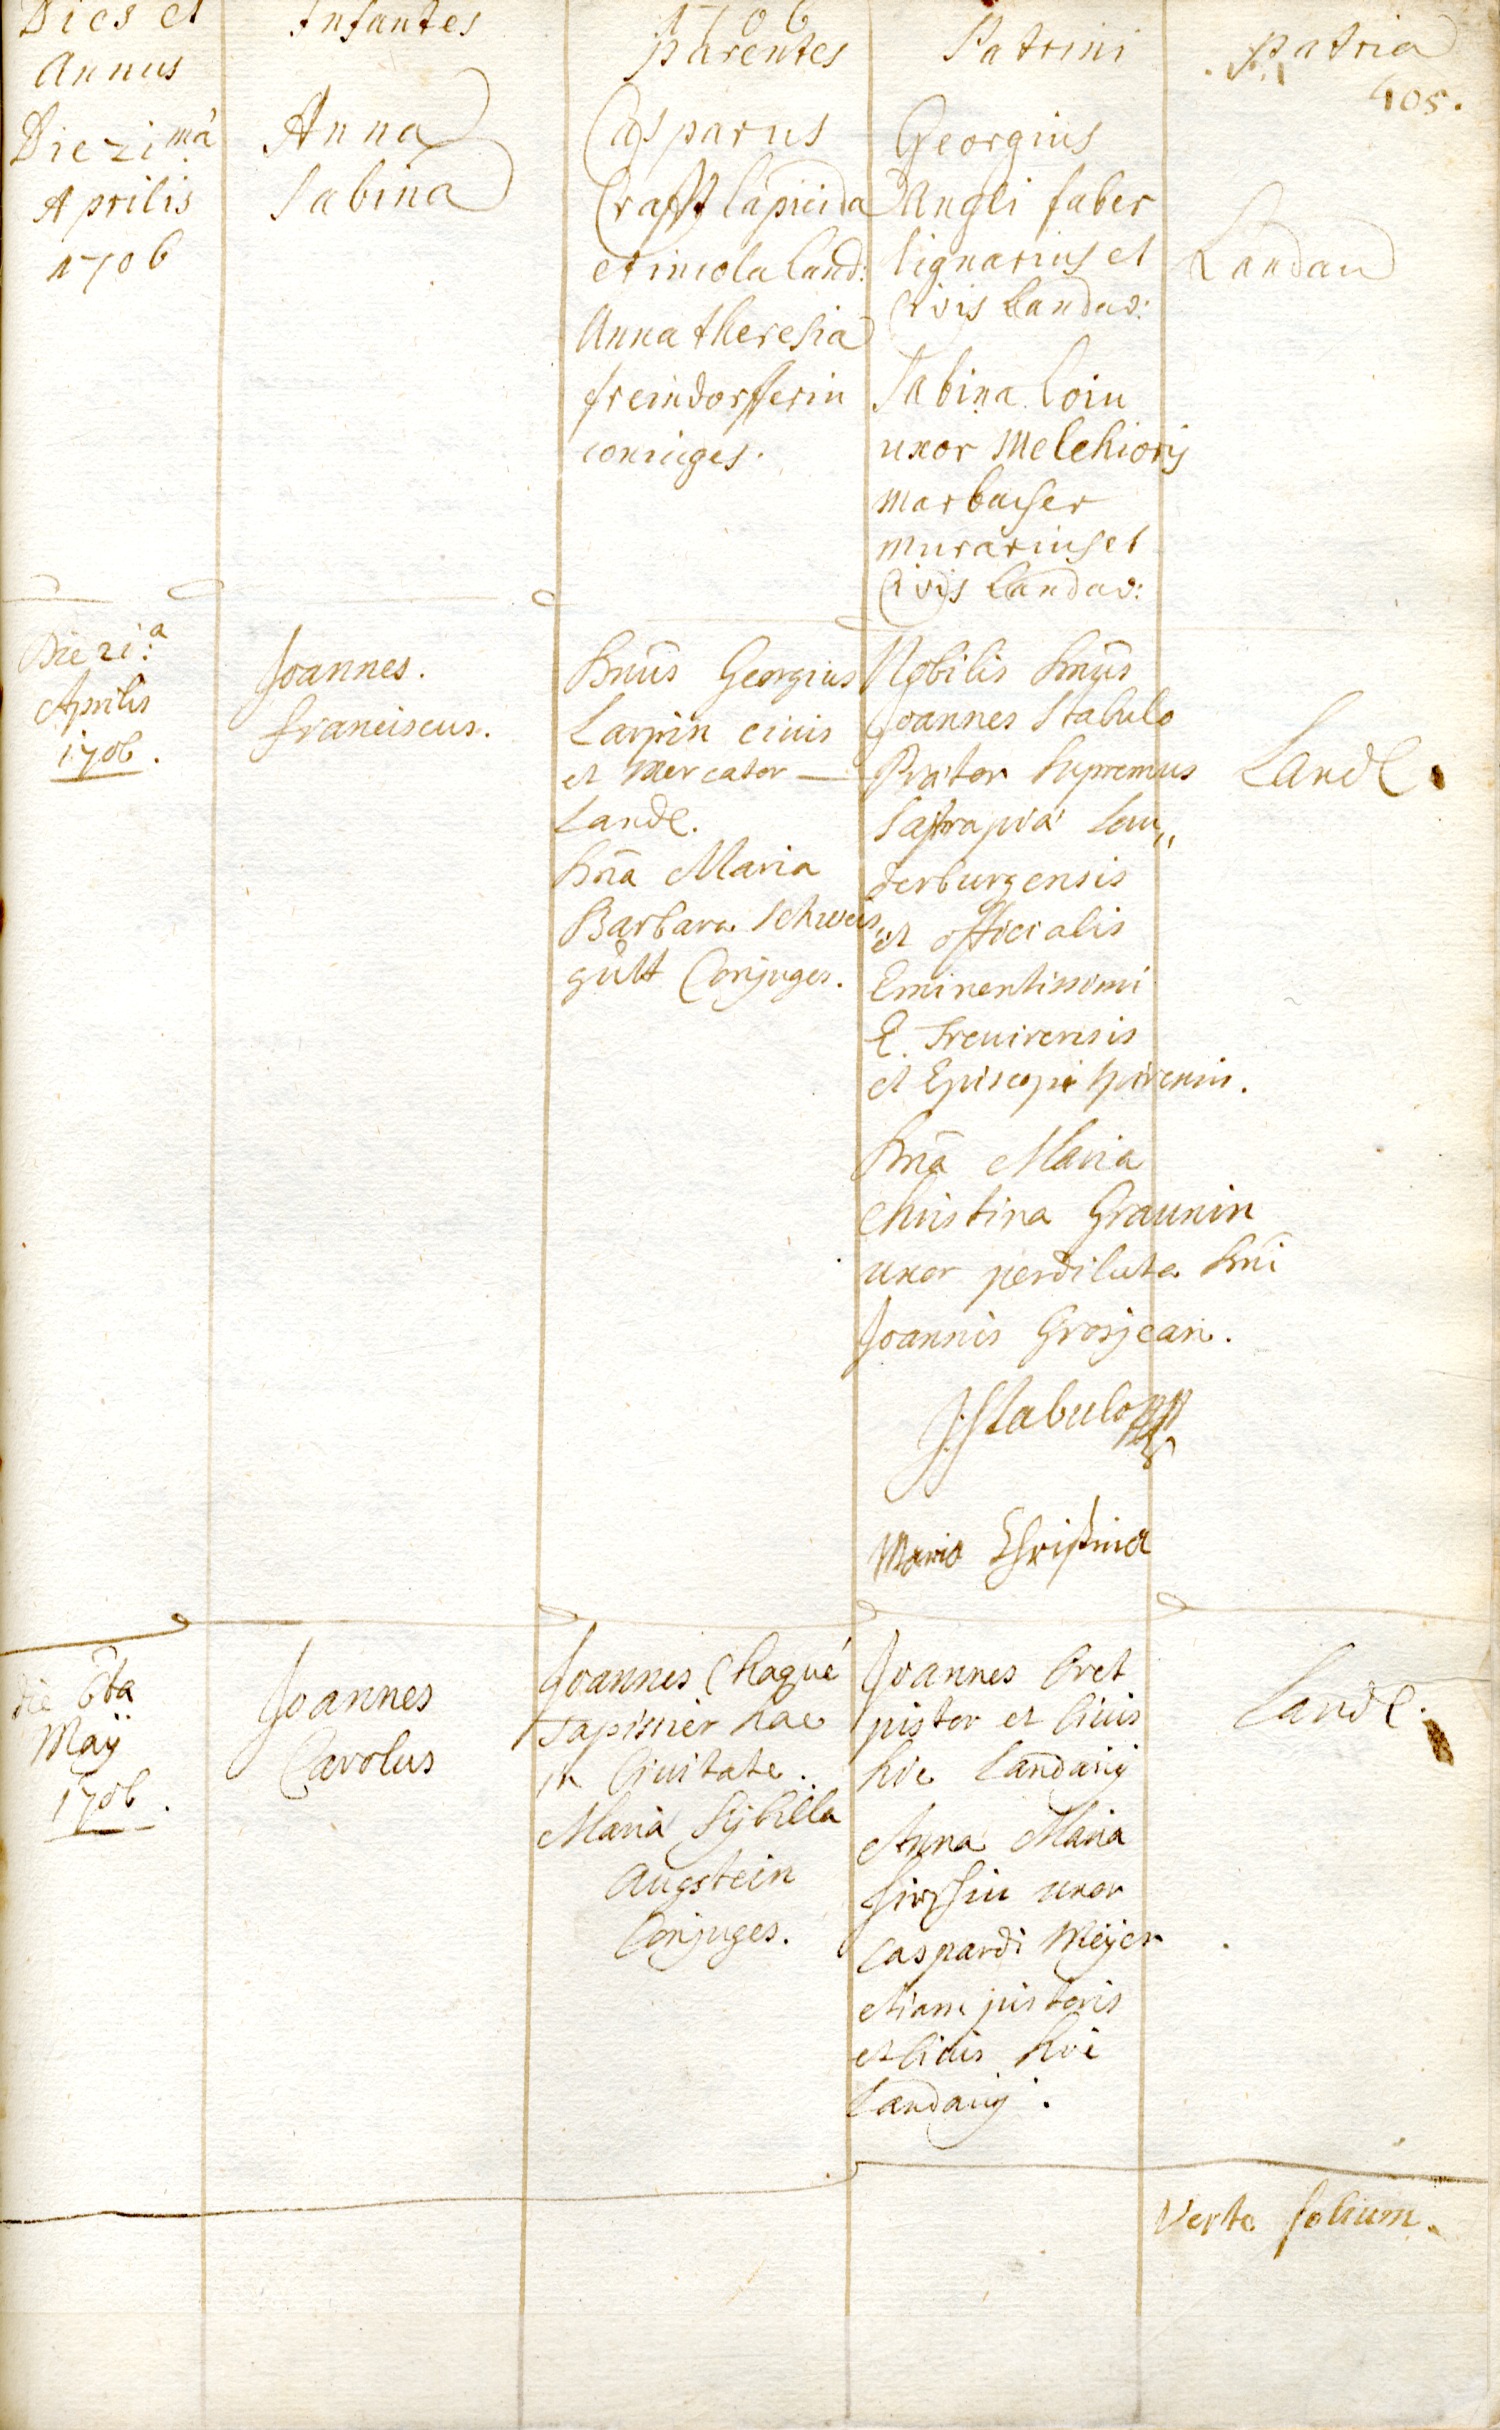 1706
Dies et
Annus
Infantes
parentes
Patrini
patria
405.
Die 21 mà
Aprilis
1706
Anna
Sabina
Casparus
Crafft lapicida
et incola Land:
Anna theresia
freindorfferin
coniuges.
Georgius
Angli faber
lignarius et
Civis Landav:
Sabina Loin
uxor Melchioris
Marbacher
murarius et
Civis Landav:
Landau
Die 21.a
Aprilis
1706.
Joannes.
franciscus.
Dnus Georgius
Larpin civis
et Mercator
Landl.
Dna Maria
Barbara Schweis„
gutt Conjuges.
Nobilis Dnus
Joannes Stabulo
Prætor Supremus
Satrapiæ Lau„
derburgensis
et officialis
Eminentissimi
E. Trevirensis
et Episcopi Spirensis.
Dna Maria
Christina Graunin
uxor perdilecta Dni
Joannis Grosjean.
J. Stabulo
Maria Christina
Landl.
die 6ta
Maÿ
1706.
Joannes
Carolus
Joannes Chaqué
Tapissier hac
in Civitate.
Maria Sÿbilla
Augstein
Conjuges.
Joannes Bret
pistor et Civis
hic Landavij
Anna Maria
Hirschin uxor
Caspardi Meÿer
etiam pistoris
et Civis hic
Landavij.
Landl.
Verte folium.